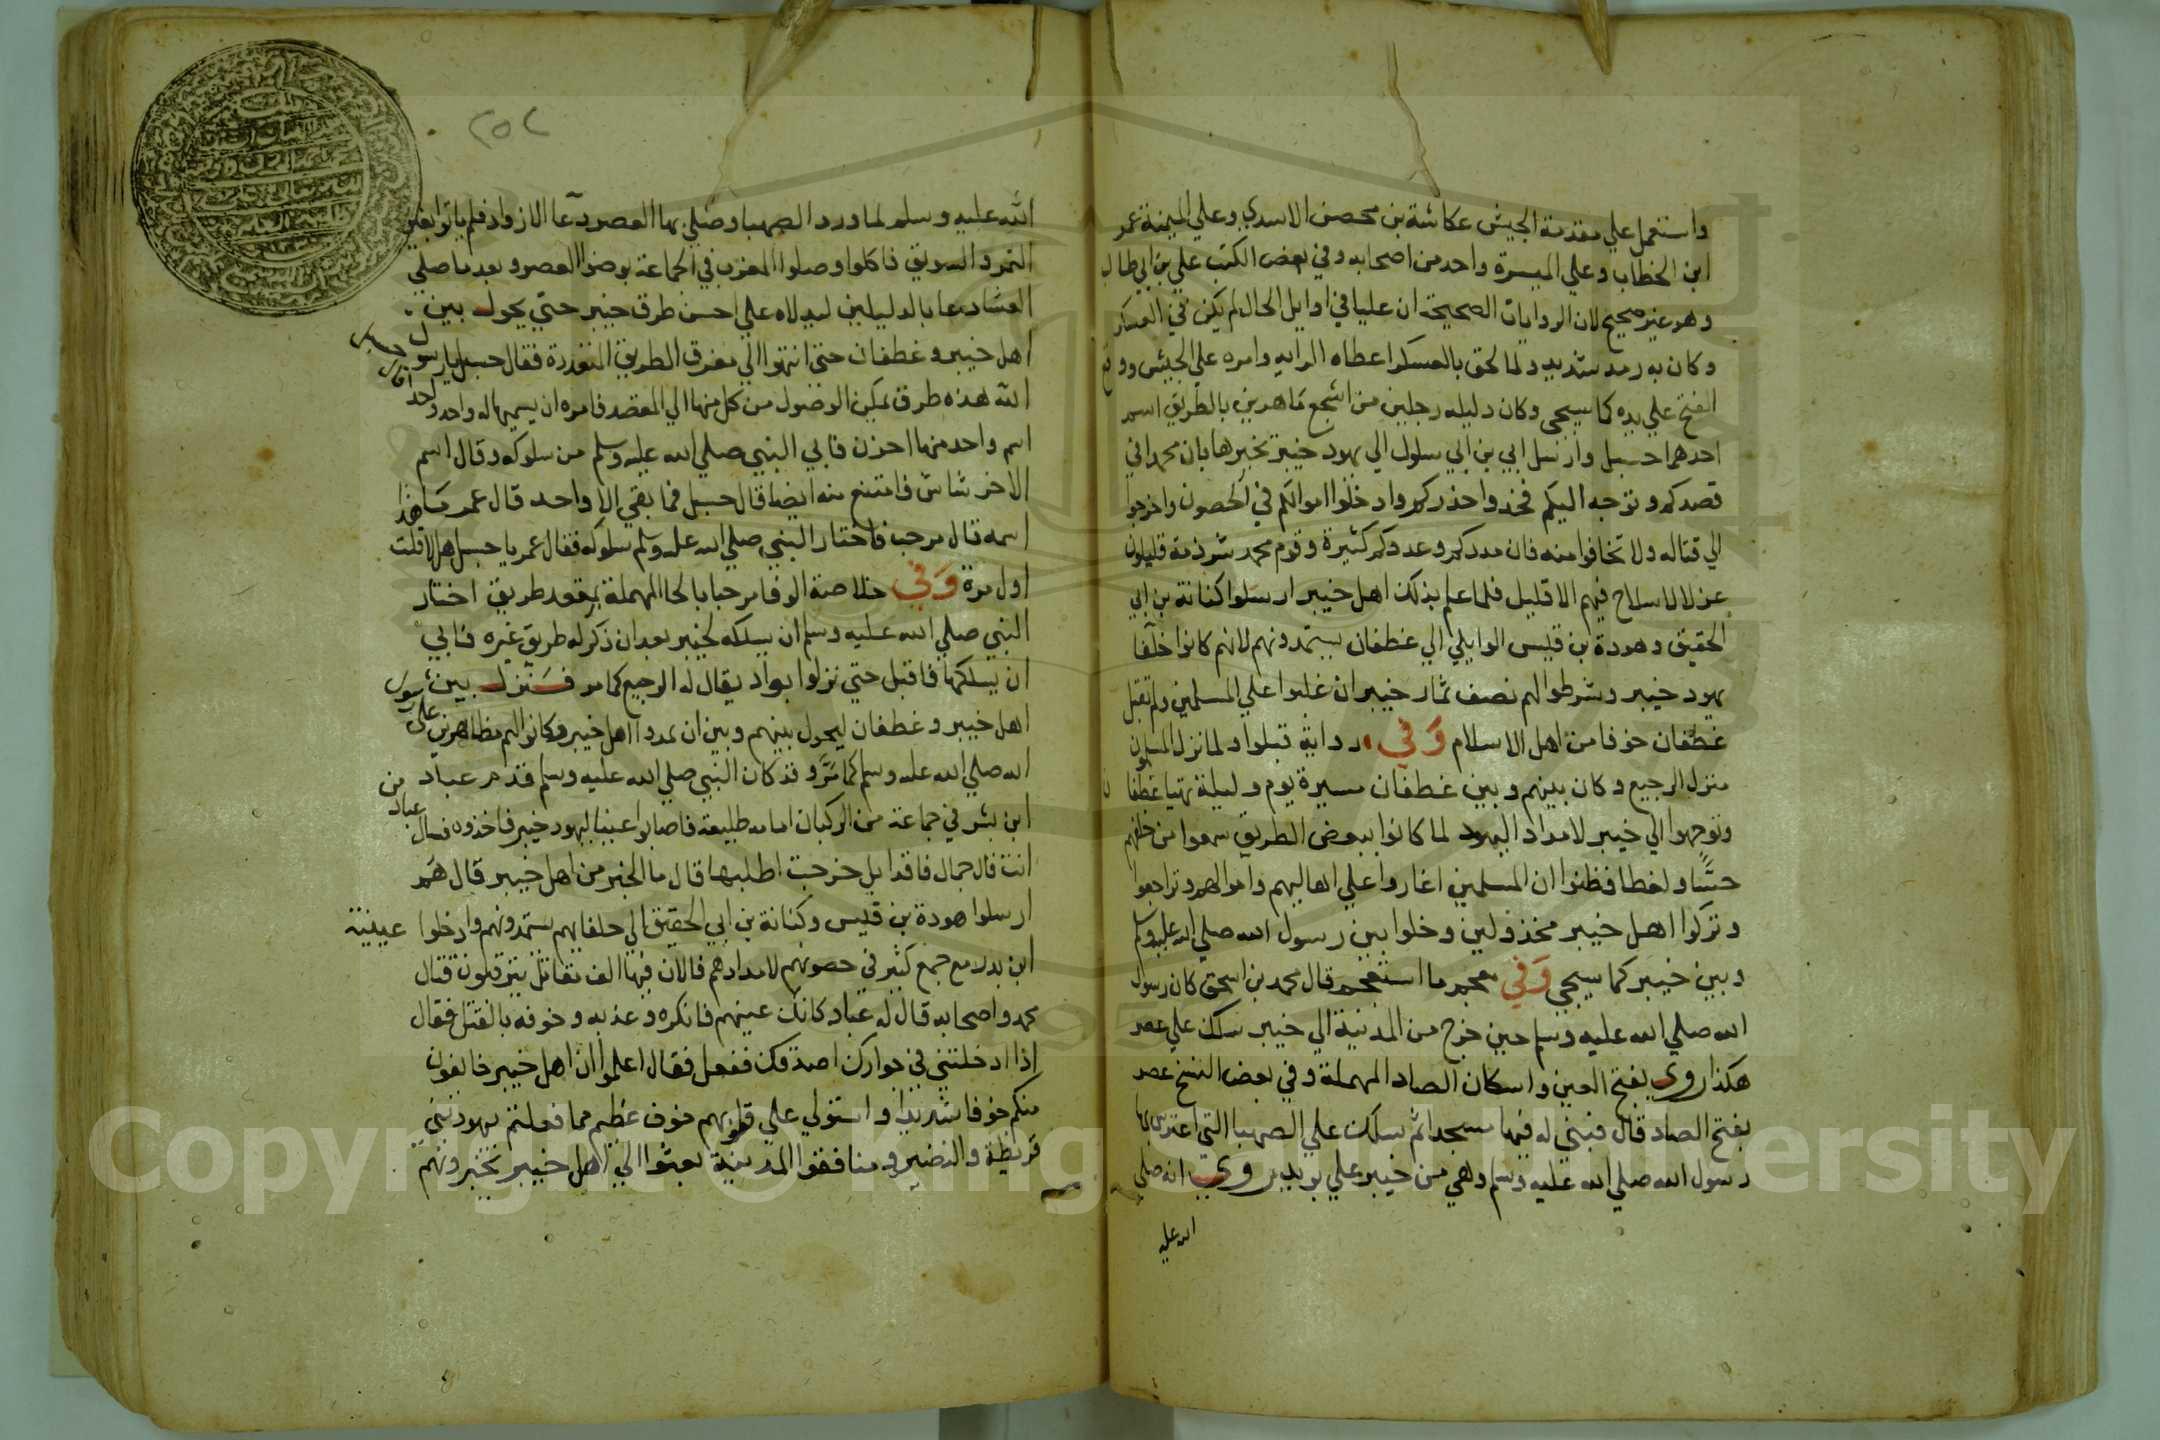 واستعمل علي مقدمة الجيش عكاشة بن محصن الاسدي وعلي الميمنة عمر
ابن الخطاب وعلي الميسرة واحد من اصحابه وفي بعض الكتب علي بن ابي طالب
وهو غير صحيح لان الروايات الصحيحة ان عليا في اوايل الحال لم يكن في العسكر
وكان به رمد شديد ولما لحق بالعسكر اعطاه الراية وامره علي الجيش ووقع
الفتح علي يده كما سيجي وكان دليله رجلين من اشجع ماهرين بالطريق اسم
احدهما حسيل وارسل ابي بن ابي سلول الي يهود خيبر تخبرها بان محمد اني
قصدكم وتوجه اليكم فخذوا حذركم وادخلوا اموالكم في الحصون واخرجوا
الي قتاله ولا تخافوا منه فان مددكم وعددكم كثيرة وقوم محمد شرذمة قليلون
عزلا لا سلاح فيهم الا قليل فلما علم بذلك اهل خيبر ارسلوا كنانة بن ابي
الحقيق وهودة بن قيس الوايلي الي غطفان يستمدونهم لانهم كانوا خلفا
يهود خيبر وشرطوا لهم نصف ثمار خيبر ان غلبوا علي المسلمين ولم تقبل
غطفان خوفا من اهل الاسلام وفي رواية قبلوا ولما نزل المسلمون
منزل الرجيع وكان بينهم وبين غطفان مسيرة يوم وليلة تهيا غطفان
وتوجهوا الي خيبر لامداد اليهود لما كانوا ببعض الطريق سمعوا من خلفهم
حسا ولغطا فظنوا ان المسلمين اغاروا علي اهاليهم واموالهم وتراجعوا
وتركوا اهل خيبر مخذولين وخلوا بين رسول الله صلي الله عليه وسلم
وبين خيبر كما سيجي وفي معجم ما استعجم قال محمد بن اسحق كان رسول
الله صلي الله عليه وسلم حين خرج من المدينة الي خيبر سلك علي عصر
هكذا روي بفتح العين واسكان الصاد المهملة وفي بعض النسخ عصر
بفتح الصاد قال فبني له فيها مسجد اثم سلك علي الصهبا التي اعترس بها
رسول الله صلي الله عليه وسلم وهي من خيبر علي بريد روي انه صلي
الله عليه
٢٥٢
الله عليه وسلم لما ورد الصهبا وصلي بها العصر دعا الازواد فلم ياتوا بغير
التمر والسويق فاكلوا وصلوا المغرب في الجماعة بوضوا العصر وبعد ما صلي
العشا دعا بالدليلين ليدلاه علي احسن طرق خيبر حتي يحول بين
اهل خيبر وغطفان حتي انتهوا الي مفرق الطريق المتعددة فقال حسيل يا رسول
الله هذه طرق يمكن الوصول من كل منها الي المقصد فامره ان يسميها له واحد واحد
اسم واحد منها احزن فابي النبي صلي الله عليه وسلم من سلوكه وقال اسم
الاخر شاش فامتنع منه ايضا قال حسيل فما بقي الا واحد قال عمر ما هذا
اسمه قال مرحب فاختار النبي صلي الله عليه وسلم سلوكه فقال عمر يا حسيل هلا قلت
اول مرة وفي خلاصة الوفا مرحبا بالحا المهملة كمقعد طريق اختار
النبي صلي الله عليه وسلم ان يسلكه لخيبر بعد ان ذكر له طريق غيره فابي
ان يسلكها فاقبل حتي نزلوا بواد يقال له الرجيع كما مر فسنزل بين
اهل خيبر وغطفان ليحول بينهم وبين ان يمدوا اهل خيبر وكانوا لهم مظاهرين علي رسول
الله صلي الله عليه وسلم كما مر وقد كان النبي صلي الله عليه وسلم قدم عباد
ابن بشر في جماعة من الركبان امامه طليعة فاصابوا عينا ليهود خيبر فاخذوه فسال عباد من
انت قال جمال فاقد ابل خرجت اطلبها قال ما الخبر من اهل خيبر قال هم
ارسلوا هودة بن قيس وكنانة بن ابي الحقيق الي حلفايهم يستمدونهم وادخلوا عيينة
ابن بدر مع جمع كثير في حصونهم لامدادهم فالان فيها الف مقاتل يترقبون قتال
محمد واصحابه قال له عباد كانك عينهم فانكره وعذبه وخوفه بالقتل فقال
اذا ادخلتني في جوارك اصدقك ففعل فقال اعلموا ان اهل خيبر خايفون
منكم خوفا شديدا واستولي علي قلوبهم خوف عظيم مما فعلتم بيهود بني
قريظة والنضير ومنافقوا المدينة بعثوا الي اهل خيبر يخبرونهم
Copyright © King Saud University